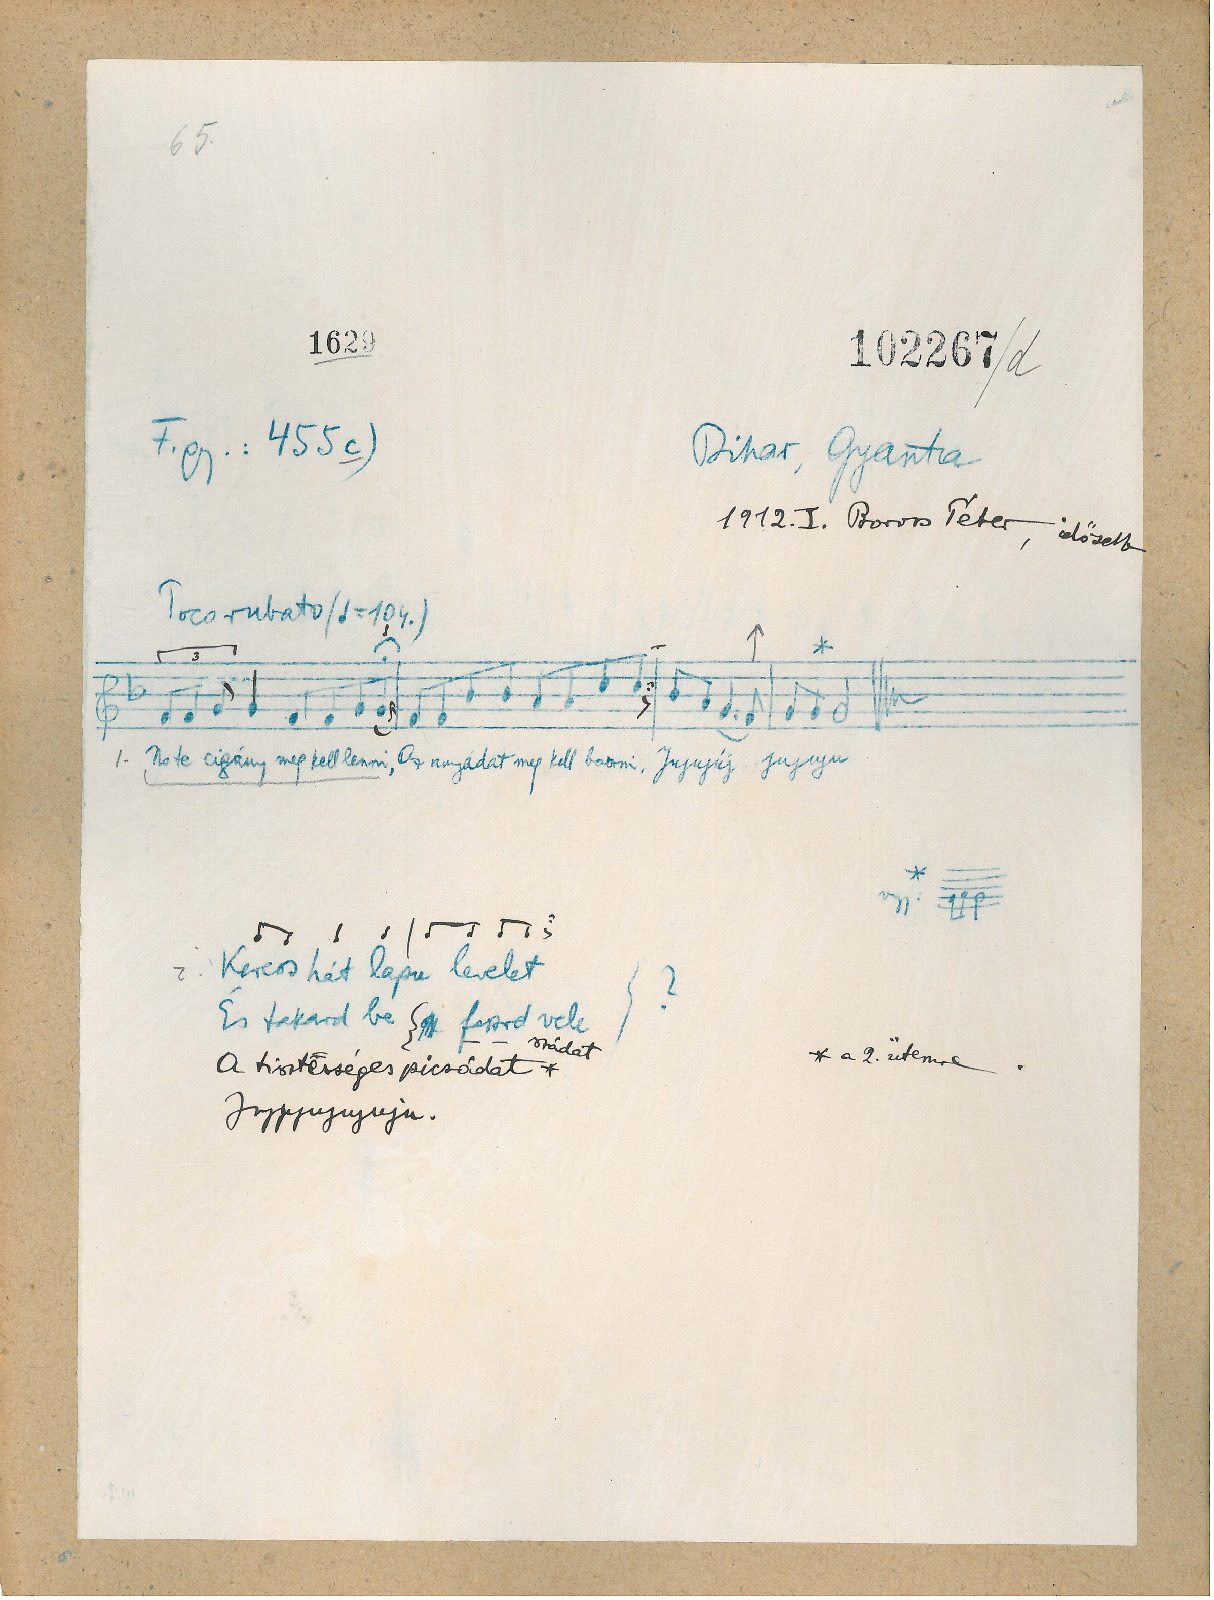 65.
1629
102267/d
F.gy.: 455c)
Bihar, Gyanta
1912.I. Boross Péter, idősebb
Poco rubato (♩=104.)
3
*
1. No te cigány meg kell lenni, Az anyádat meg kell baszni, Jujujúj jujuju
*
vagy:
2. Keress hát lapu levelet
És takard be fesd vele
szádat
A tisztességes picsádat *
?
* a 2. ütemre.
Jujjujujujuju.